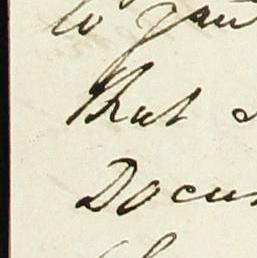 to you
that
Docu